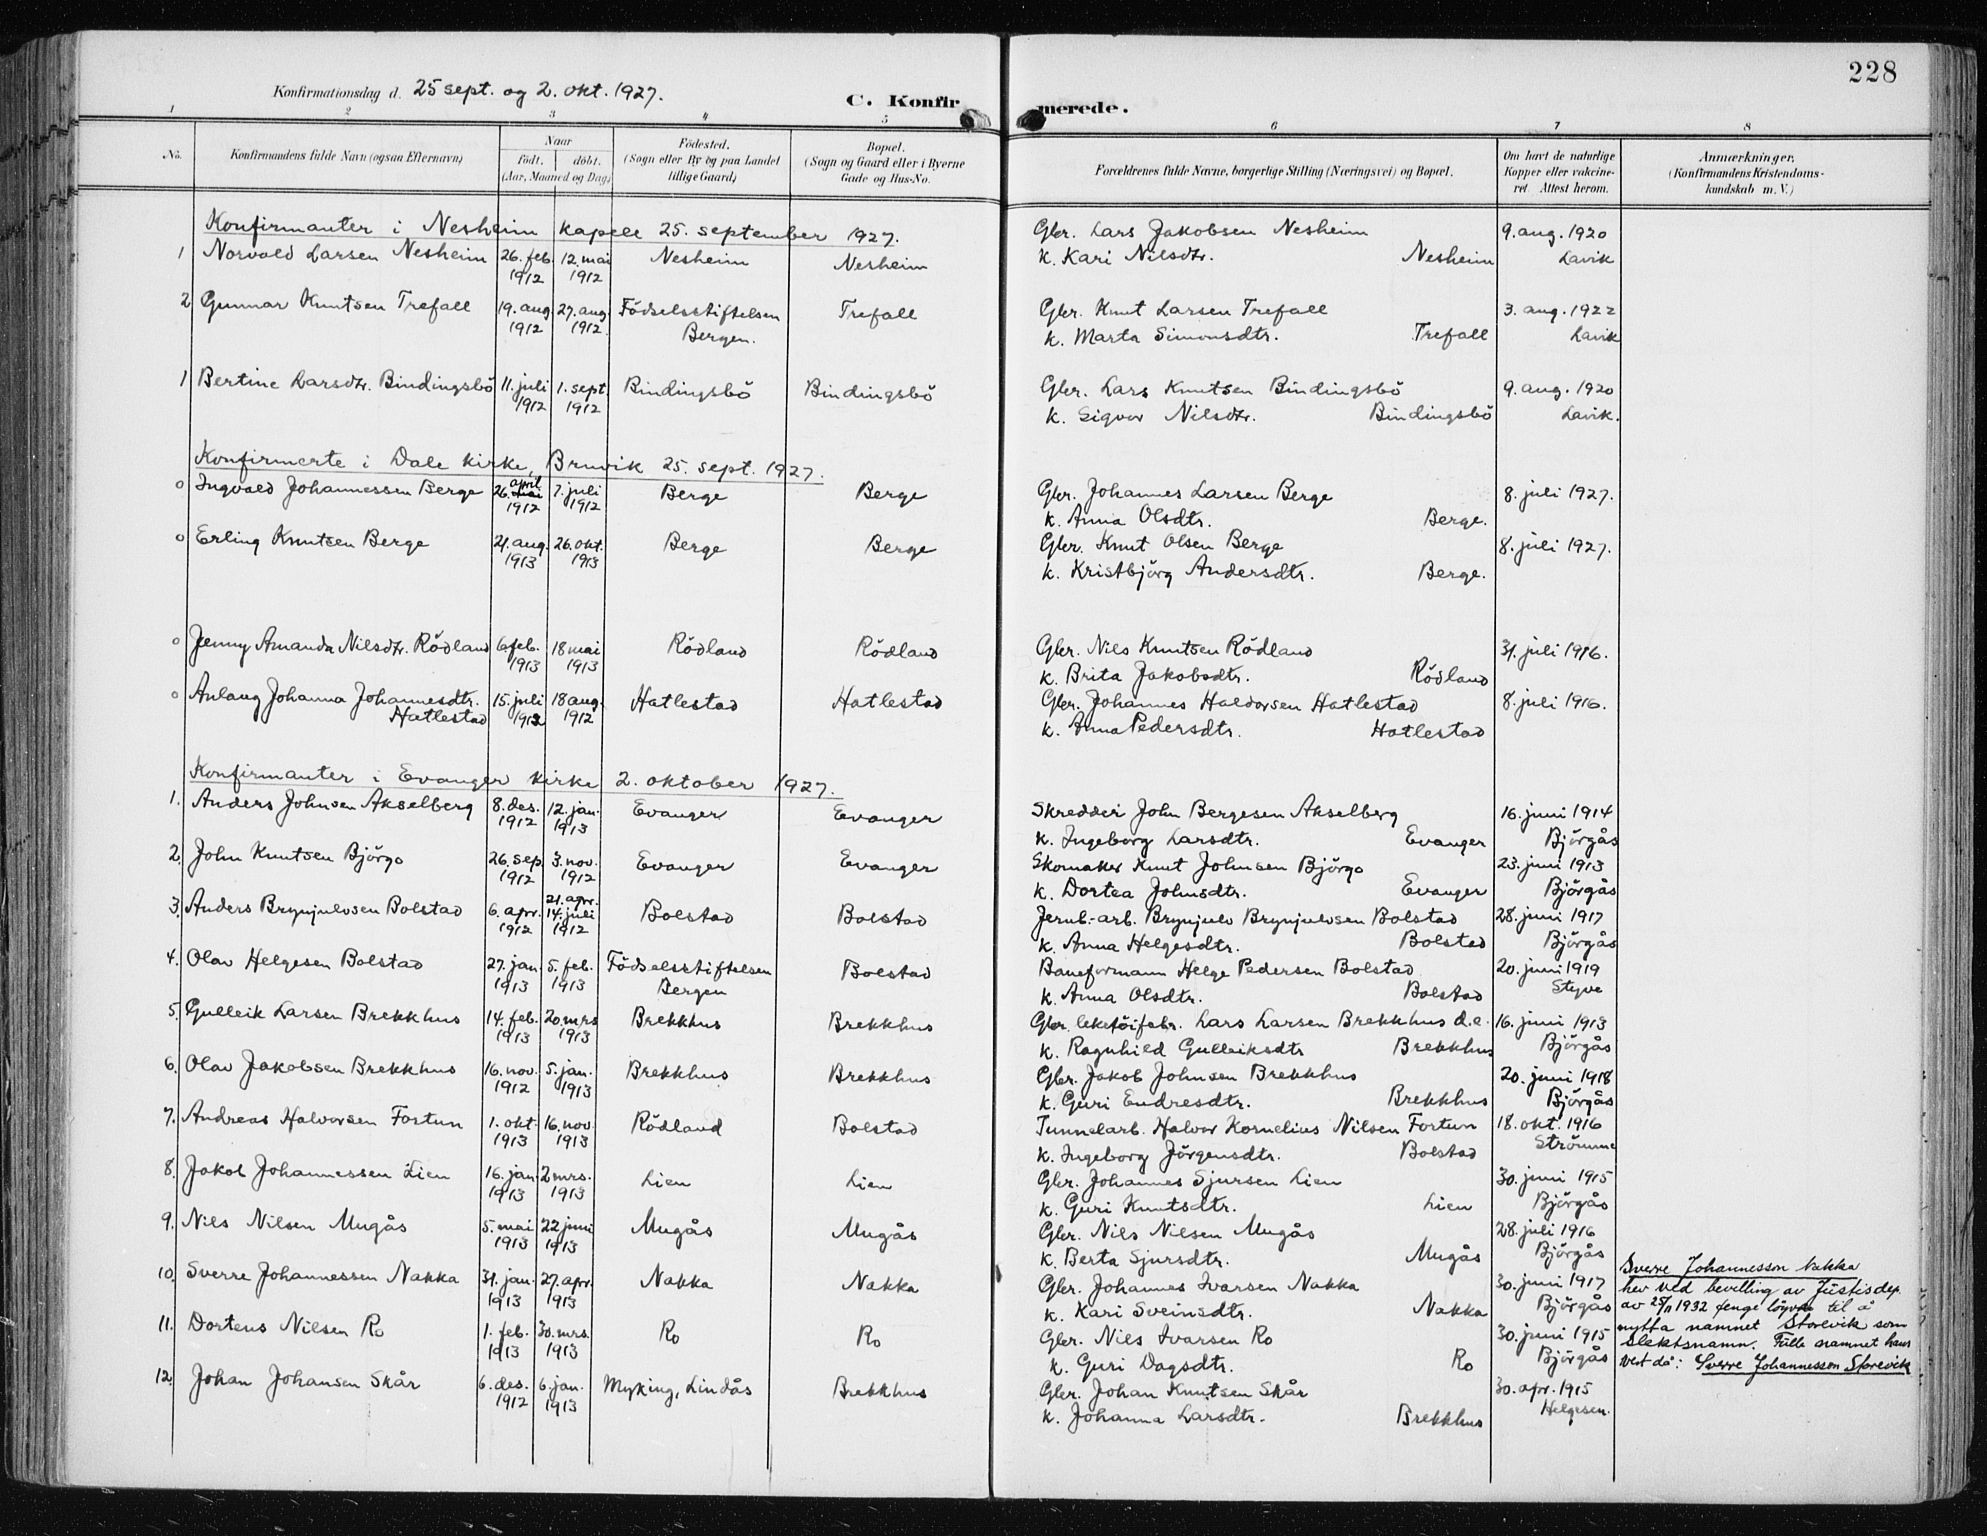 228
Konfirmationsdag d. 25 sept. og 2. okt. 1927.
C. Konfirmerede.
1 2 3 4 5 6 7 8
No.
Konfirmandens fulde Navn (ogsaa Efternavn)
Naar
födt. döbt.
(Aar, Maaned og Dag)
Födested.
(Sogn eller By og paa Landet
tillige Gaard)
Bopæl.
(Sogn og Gaard eller i Byerne
Gade og Hus-No.
Forældrenes fulde Navne, borgerlige Stilling (Næringsvei) og Bopæl.
Om havt de naturlige
Kopper eller vakcine-
ret. Attest herom.
Anmærkninger.
(Konfirmandens Kristendoms-
kundskab m. V.)
Konfirmanter i Nesheim kapell 25. september 1927.
1 Norvald Larsen Nesheim 26. feb. 1912 12. mai 1912 Nesheim Nesheim Gbr. Lars Jakobsen Nesheim 9. aug. 1920
k. Kari Nilsdtr. Nesheim Lavik
2 Gunnar Knutsen Trefall 19. aug. 1912 27. aug. 1912. Födselsstiftelsen Bergen. Trefall Gbr. Knut Larsen Trefall 3. aug. 1922
k. Marta Simonsdtr. Trefall Lavik
1 Bertine Larsdtr. Bindingsbö 11. juli 1912 1. sept. 1912 Bindingsbö Bindingsbö Gbr. Lars Knutsen Bindingsbö 9. aug. 1920
k. Sigvor Nilsdtr. Bindingsbö Lavik.
Konfirmerte i Dale kirke, Bruvik 25. sept. 1927.
0 Ingvald Johannessen Berge 26. mai april 1912 7. juli 1912 Berge Berge Gbr. Johannes Larsen Berge 8. juli 1927.
k. Anna Olsdtr. Berge.
0 Erling Knutsen Berge 21. aug. 1913 26. okt. 1913 Berge Berge Gbr. Knut Olsen Berge 8. juli 1927.
k. Kristbjörg Andersdtr. Berge.
0 Jenny Amanda Nilsdtr. Rödland 6 feb. 1913 18 mai 1913 Rödland Rödland Gbr. Nils Knutsen Rödland 31. juli 1916.
k. Brita Jakobsdtr. Rödland
0 Anlaug Johanna Johannesdtr. Hatlestad 15. juli 1912 18 aug. 1912 Hatlestad Hatlestad Gbr. Johannes Haldorsen Hatlestad 8. juli 1916.
k. Anna Pedersdtr. Hatlestad
Konfirmanter i Evanger kirke 2. oktober 1927.
1. Anders Johnsen Akselberg 8. des. 1912 12. jan. 1913 Evanger Evanger Skredder John Bergesen Akselberg 16. juni 1914
k. Ingeborg Larsdtr. Evanger Björgås
2. John Knutsen Björgo 26. sep. 1912 3. nov. 1912 Evanger Evanger Skomaker Knut Johnsen Björgo 23. juni 1913
k. Dortea Johnsdtr. Evanger Björgås
3. Anders Brynjulvsen Bolstad 6. apr. 1912 21. apr. 14. juli 1912 Bolstad Bolstad Jernb.-arb. Brynjulv Brynjulvsen Bolstad 28. juni 1917
k. Anna Helgesdtr. Bolstad Björgås
4. Olav Helgesen Bolstad 27. jan. 1913 5. feb. 1913 Födselsstiftelsen Bergen Bolstad Baneformann Helge Pedersen Bolstad 20. juni 1919
k. Anna Olsdtr. Bolstad Styve
5. Gulleik Larsen Brekkhus 14. feb. 1913 20. mrs 1913 Brekkhus Brekkhus Gbr. leketöifabr. Lars Larsen Brekkhus d.e. 16. juni 1913
k. Ragnhild Gulleiksdtr Brekkhus Björgås
6. Olav Jakobsen Brekkhus 16. nov. 1912 5. jan. 1913 Brekkhus Brekkhus Gbr. Jakob Johnsen Brekkhus 20. juni 1918
k. Guri Endresdtr. Brekkhus Björgås
7. Andreas Halvorsen Fortun 1. okt 1913 16. nov 1913 Rödland Bolstad Tunnelarb. Halvor Kornelius Nilsen Fortun 18. okt. 1916
k. Ingeborg Jörgensdtr. Bolstad Strömme
8. Jakob Johannessen Lien 16. jan. 1913 2 mrs. 1913 Lien Lien Gbr. Johannes Sjursen Lien 30. juni 1915
k. Guri Knutsdtr. Lien Björgås
9. Nils Nilsen Mugås 5. mai 1913 22 juni 1913 Mugås Mugås Gbr. Nils Nilsen Mugås 28. juli 1916
k. Berta Sjursdtr. Mugås Björgås
10. Sverre Johannessen Nakka 31. jan. 1913 27. apr. 1913 Nakka Nakka Gbr. Johannes Ivarsen Nakka 30. juni 1917
k. Kari Sveinsdtr. Nakka Björgås
Sverre Johannesson Nakka
hev ved bevilling av Justisdep.
av 25/11 1932 fenge löyve til å
nytta namnet Storevik som
slektsnamn. Fulle namnet hans
vert då: Sverre Johannessen Storevik
11. Dorteus Nilsen Ro 1. feb. 1913 30. mrs. 1913 Ro Ro Gbr. Nils Ivarsen Ro 30. juni 1915
k. Guri Dagsdtr. Ro Björgås
12. Johan Johansen Skår 6. des. 1912 6. jan. 1913 Myking, Lindås Brekkhus Gbr. Johan Knutsen Skår 30. apr. 1915
k. Johanna Larsdtr. Brekkhus Helgesen.